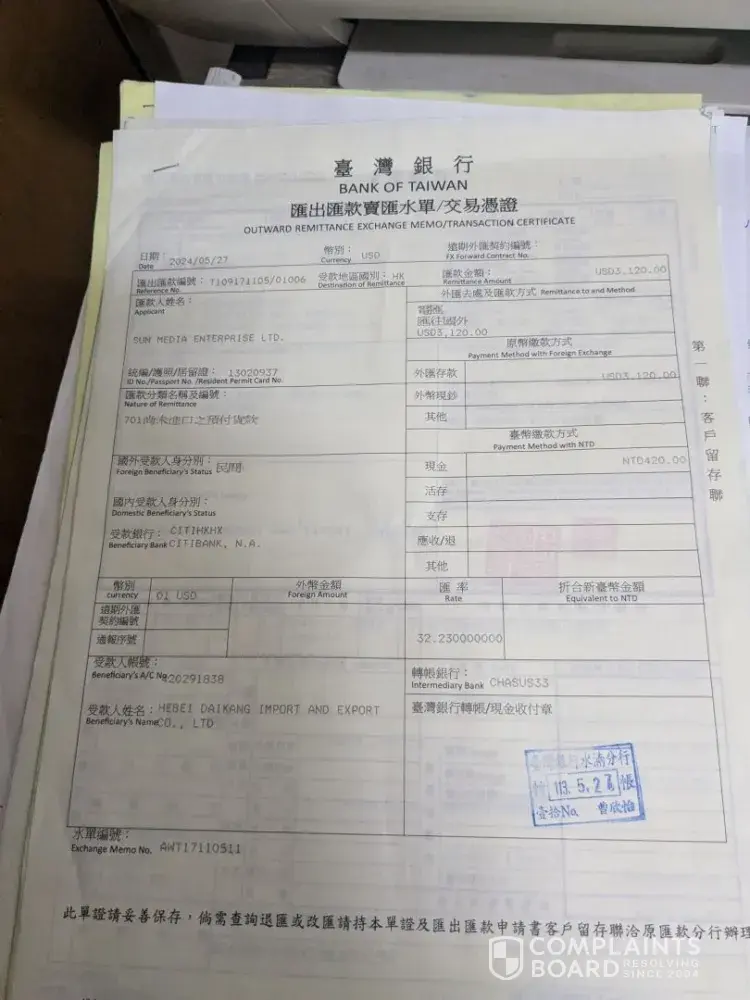 臺灣銀行
BANK OF TAIWAN
匯出匯款賣匯水單/交易憑證
OUTWARD REMITTANCE EXCHANGE MEMO/TRANSACTION CERTIFICATE
日期： 2024/05/27 幣別： USD 遠期外匯契約編號：
Date Currency FX Forward Contract No.
匯出匯款編號： T109171105/01006 受款地區國別： HK 匯款金額： USD3,120.00
Reference No. Destination of Remittance Remittance Amount
匯款人姓名： 外匯去處及匯款方式 Remittance to and Method
Applicant
電匯
匯往國外
USD3,120.00
SUN MEDIA ENTERPRISE LTD.
原幣繳款方式
Payment Method with Foreign Exchange
統編/護照/居留證： 13020937 外匯存款 USD3,120.00
ID No./Passport No. /Resident Permit Card No.
匯款分類名稱及編號： 外幣現鈔
Nature of Remittance
701尚未進口之預付貨款 其他
臺幣繳款方式
Payment Method with NTD
國外受款人身分別： 民間 現金 NTD420.00
Foreign Beneficiary's Status
活存
國內受款人身分別：
Domestic Beneficiary's Status
支存
受款銀行： CITIHKHX 應收/退
Beneficiary Bank CITIBANK, N.A.
其他
幣別 01 USD 外幣金額 匯 率 折合新臺幣金額
currency Foreign Amount Rate Equivalent to NTD
遠期外匯
契約編號
通報序號 32.230000000
受款人帳號： 轉帳銀行： CHASUS33
Beneficiary's A/C No 420291838 Intermediary Bank
受款人姓名： HEBEI DAIKANG IMPORT AND EXPORT 臺灣銀行轉帳/現金收付章
Beneficiary's Name CO., LTD
水湳分行
113. 5. 2
帳
壹拾No. 曹欣怡
水單編號：
Exchange Memo No. AWT17110511
此單證請妥善保存，倘需查詢退匯或改匯請持本單證及匯出匯款申請書客戶留存聯洽原匯款分行辦理
第一聯：客戶留存聯
COMPLAINTS
BOARD RESOLVING
SINCE 2004